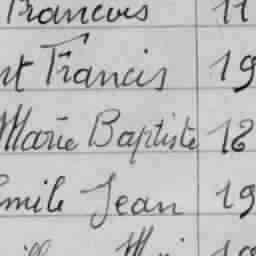 Francois 11
nt Francis 19
Marie Baptiste 18
Emile Jean 19